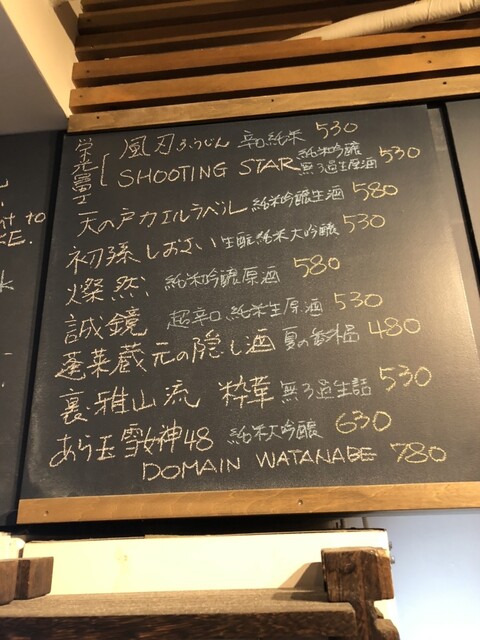 栄光冨士
風刃 ふうじん 辛口純米 530
SHOOTING STAR 純米吟醸 無ろ過生原酒 530
天の戸カエルラベル 純米吟醸生酒 580
初孫 しおさい 生酛純米大吟醸 530
燦然 純米吟醸原酒 580
誠鏡 超辛口純米生原酒 530
蓬莱蔵元の隠し酒 夏の番外品 480
裏・雅山流 粋華 無ろ過生詰 530
あら玉 雪女神48 純米大吟醸 630
DOMAIN WATANABE 780
t to
KE.
k